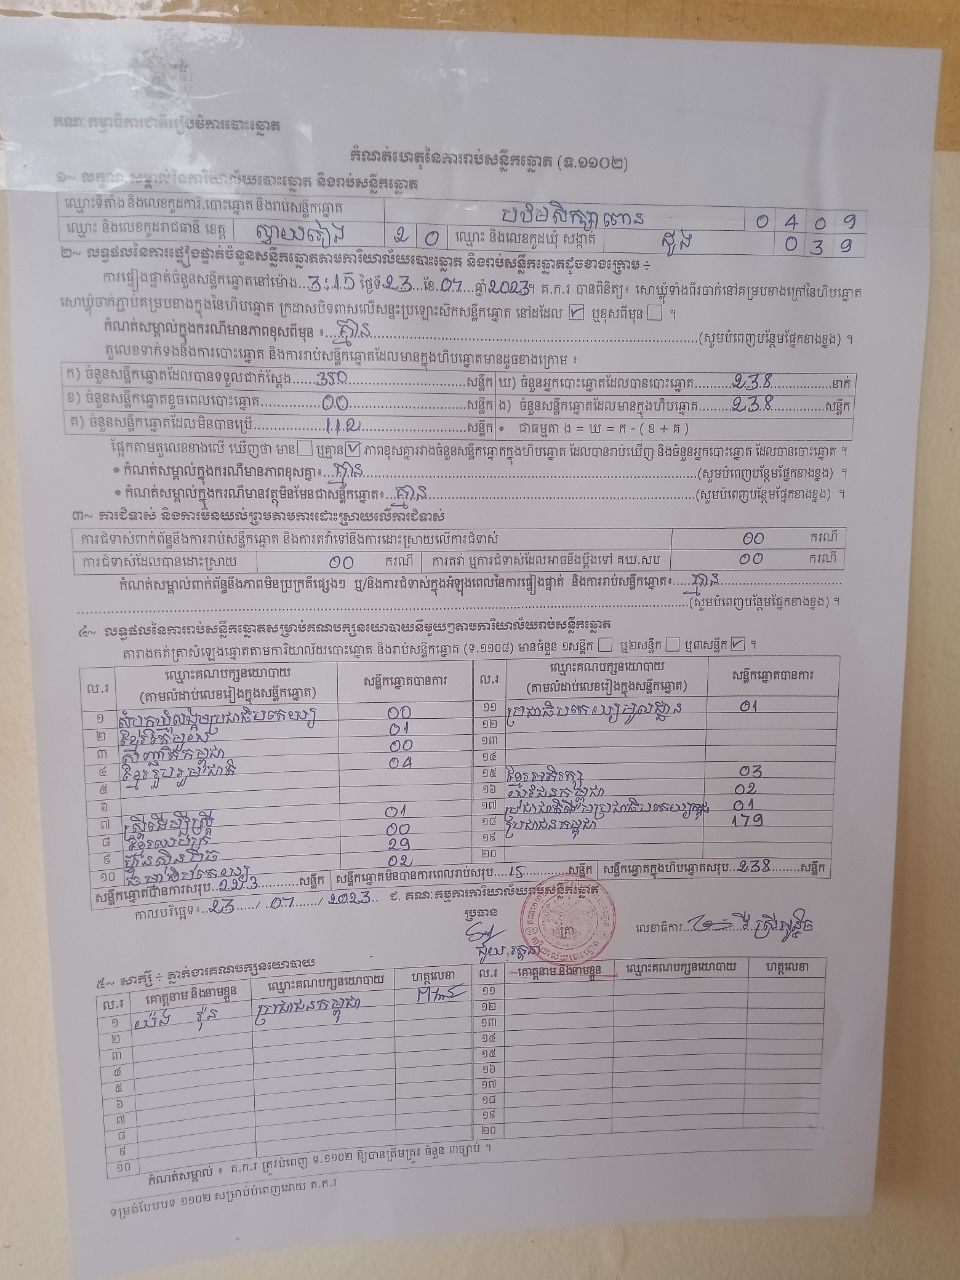 គណៈកម្មាធិការជាតិរៀបចំការបោះឆ្នោត
កំណត់ហេតុនៃការរាប់សន្លឹកឆ្នោត (ទ.១១០២)
១~ លក្ខណៈសម្គាល់នៃការិយាល័យបោះឆ្នោត និងរាប់សន្លឹកឆ្នោត
ឈ្មោះទីតាំង និងលេខកូដការិ.បោះឆ្នោត និងរាប់សន្លឹកឆ្នោត 0 4 0 9
ឈ្មោះ និងលេខកូដរាជធានី ខេត្ត ស្វាយរៀង 2 0 ឈ្មោះ និងលេខកូដឃុំ សង្កាត់ 0 3 9
២~ លទ្ធផលនៃការផ្ទៀងផ្ទាត់ចំនួនសន្លឹកឆ្នោតតាមការិយាល័យបោះឆ្នោត និងរាប់សន្លឹកឆ្នោតដូចខាងក្រោម ÷
ការផ្ទៀងផ្ទាត់ចំនួនសន្លឹកឆ្នោតនៅម៉ោង 3:15 ថ្ងៃទី 23 ខែ 07 ឆ្នាំ 2023។ គ.ក.រ បានពិនិត្យ៖ សោឃ្លុំទាំងពីរចាក់នៅគម្របខាងក្រៅនៃហិបឆ្នោត
សោឃ្លុំចាក់ភ្ជាប់គម្របខាងក្នុងនៃហិបឆ្នោត ក្រដាសបិទពាសលើសន្ទះប្រឡោះស៊កសន្លឹកឆ្នោត នៅដដែល ☑ ឬខុសពីមុន ☐ ។
កំណត់សម្គាល់ក្នុងករណីមានភាពខុសពីមុន ៖ គ្មាន (សូមបំពេញបន្ថែមផ្នែកខាងខ្នង) ។
តួលេខទាក់ទងនឹងការបោះឆ្នោត និងការរាប់សន្លឹកឆ្នោតដែលមានក្នុងហិបឆ្នោតមានដូចខាងក្រោម ៖
ក) ចំនួនសន្លឹកឆ្នោតដែលបានទទួលជាក់ស្តែង 350 សន្លឹក ឃ) ចំនួនអ្នកបោះឆ្នោតដែលបានបោះឆ្នោត 238 នាក់
ខ) ចំនួនសន្លឹកឆ្នោតខូចពេលបោះឆ្នោត 00 សន្លឹក ង) ចំនួនសន្លឹកឆ្នោតដែលមានក្នុងហិបឆ្នោត 238 សន្លឹក
គ) ចំនួនសន្លឹកឆ្នោតដែលមិនបានប្រើ 112 សន្លឹក • ជាធម្មតា ង = ឃ = ក - ( ខ + គ )
ផ្អែកតាមតួលេខខាងលើ ឃើញថា មាន ☐ ឬគ្មាន ☑ ភាពខុសគ្នារវាងចំនួនសន្លឹកឆ្នោតក្នុងហិបឆ្នោត ដែលបានរាប់ឃើញ និងចំនួនអ្នកបោះឆ្នោត ដែលបានបោះឆ្នោត ។
• កំណត់សម្គាល់ក្នុងករណីមានភាពខុសគ្នា៖ គ្មាន (សូមបំពេញបន្ថែមផ្នែកខាងខ្នង) ។
• កំណត់សម្គាល់ក្នុងករណីមានវត្ថុមិនមែនជាសន្លឹកឆ្នោត៖ គ្មាន (សូមបំពេញបន្ថែមផ្នែកខាងខ្នង) ។
៣~ ការជំទាស់ និងការមិនយល់ព្រមតាមការដោះស្រាយលើការជំទាស់
ការជំទាស់ពាក់ព័ន្ធនឹងការរាប់សន្លឹកឆ្នោត និងការតវ៉ាទៅនឹងការដោះស្រាយលើការជំទាស់ 00 ករណី
ការជំទាស់ដែលបានដោះស្រាយ 00 ករណី ការតវ៉ា ឬការជំទាស់ដែលអាចនឹងប្តឹងទៅ គឃ.សប 00 ករណី
កំណត់សម្គាល់ពាក់ព័ន្ធនឹងភាពមិនប្រក្រតីផ្សេងៗ ឬ/និងការជំទាស់ក្នុងអំឡុងពេលនៃការផ្ទៀងផ្ទាត់ និងការរាប់សន្លឹកឆ្នោត៖ គ្មាន
(សូមបំពេញបន្ថែមផ្នែកខាងខ្នង) ។
៤~ លទ្ធផលនៃការរាប់សន្លឹកឆ្នោតសម្រាប់គណបក្សនយោបាយនីមួយៗតាមការិយាល័យរាប់សន្លឹកឆ្នោត
តារាងកត់ត្រាសំឡេងឆ្នោតតាមការិយាល័យបោះឆ្នោត និងរាប់សន្លឹកឆ្នោត (ទ.១១០៨) មានចំនួន ១សន្លឹក ☐ ឬ២សន្លឹក ☐ ឬ៣សន្លឹក ☑ ។
ល.រ ឈ្មោះគណបក្សនយោបាយ (តាមលំដាប់លេខរៀងក្នុងសន្លឹកឆ្នោត) សន្លឹកឆ្នោតបានការ ល.រ ឈ្មោះគណបក្សនយោបាយ (តាមលំដាប់លេខរៀងក្នុងសន្លឹកឆ្នោត) សន្លឹកឆ្នោតបានការ
១ សំបុកឃ្មុំសង្គមប្រជាធិបតេយ្យ 00 ១១ ប្រជាធិបតេយ្យមូលដ្ឋាន 01
២ 01 ១២
៣ 00 ១៣
៤ ខ្មែររួបរួមជាតិ 04 ១៤
៥ ១៥ ខ្មែរអភិរក្ស 03
៦ ១៦ យុវជនកម្ពុជា 02
៧ ស្ត្រីដើម្បីស្ត្រី 01 ១៧ 01
៨ 00 ១៨ ប្រជាជនកម្ពុជា 179
៩ ហ៊្វុនស៊ិនប៉ិច 29 ១៩
១០ 02 ២០
សន្លឹកឆ្នោតបានការសរុប 223 សន្លឹក សន្លឹកឆ្នោតមិនបានការពេលរាប់សរុប 15 សន្លឹក សន្លឹកឆ្នោតក្នុងហិបឆ្នោតសរុប 238 សន្លឹក
កាលបរិច្ឆេទ៖ 23 / 07 / 2023 ជ. គណៈកម្មការការិយាល័យរាប់សន្លឹកឆ្នោត
ប្រធាន
លេខាធិការ
៥~ សាក្សី ÷ ភ្នាក់ងារគណបក្សនយោបាយ
ល.រ គោត្តនាម និងនាមខ្លួន ឈ្មោះគណបក្សនយោបាយ ហត្ថលេខា ល.រ គោត្តនាម និងនាមខ្លួន ឈ្មោះគណបក្សនយោបាយ ហត្ថលេខា
១ ប្រជាជនកម្ពុជា ១១
២ ១២
៣ ១៣
៤ ១៤
៥ ១៥
៦ ១៦
៧ ១៧
៨ ១៨
៩ ១៩
១០ ២០
កំណត់សម្គាល់ ៖ គ.ក.រ ត្រូវបំពេញ ទ.១១០២ ឱ្យបានត្រឹមត្រូវ ចំនួន ៣ច្បាប់ ។
ទម្រង់បែបបទ ១១០២ សម្រាប់បំពេញដោយ គ.ក.រ